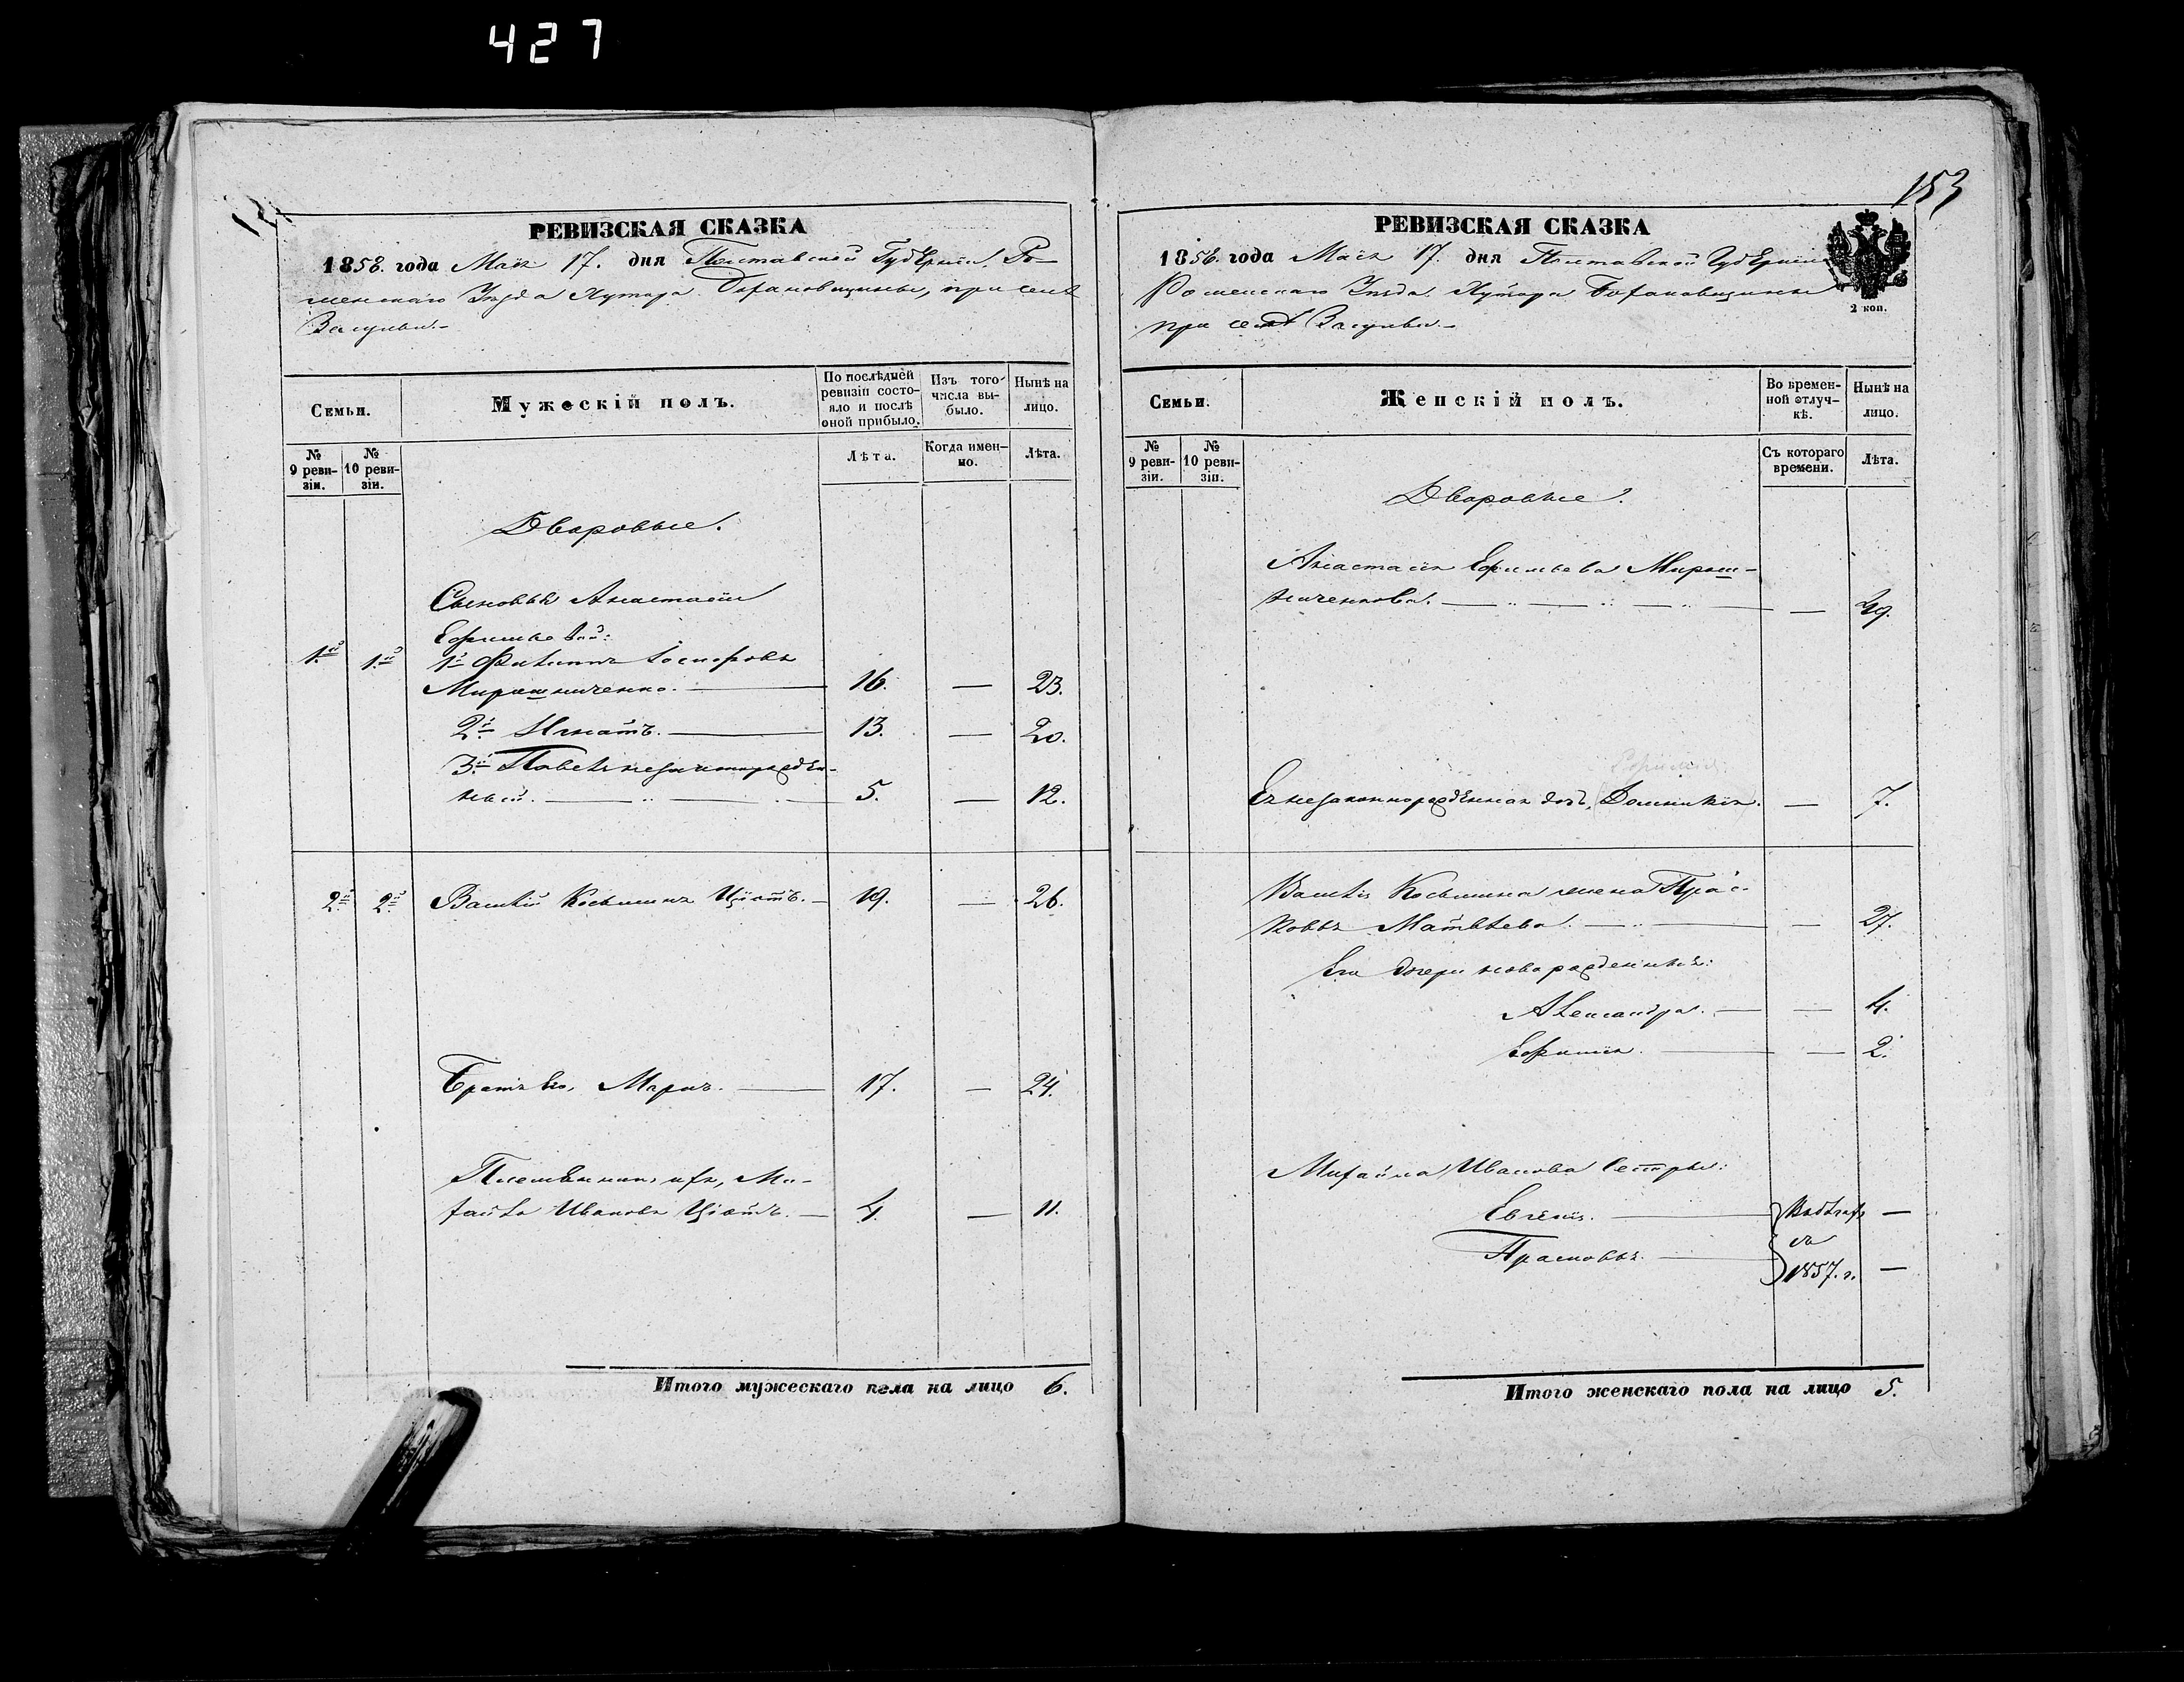 427
РЕВИЗСКАЯ СКАЗКА
1858. года Маія 17. дня Полтавской Губерніи, Ро-
менскаго Уѣзда Хутора Борановщины, при селѣ
Засульи.-
Семьи.
Мужескій полъ.
По послѣдней ревизіи состояло и послѣ оной прибыло.
Изъ того числа выбыло.
Нынѣ на лицо.
№ 9 ревизіи.
№ 10 ревизіи.
Лѣта.
Когда именно.
Лѣта.
Дворовые.
Сыновья Анастасіи
Ефимьевой:
1й 1й 1й Филиппъ Іосифовъ
Мирошниченко. — 16. — 23.
2й Игнатъ. — 13. — 20.
3й Павелъ незаконнорожден-
ный. — 5. — 12.
2й 2й Василій Косьминъ Ціотъ. — 19. — 26.
Братъ его, Маркъ. — 17. — 24.
Племянникъ ихъ, Ми-
хайла Ивановъ Ціотъ. — 4. — 11.
Итого мужескаго пола на лицо 6.
153
РЕВИЗСКАЯ СКАЗКА
1858. года Маія 17. дня Полтавской Губерніи
Роменскаго Уѣзда Хутора Борановщины
при селѣ Засульи.-
2 коп.
Семьи.
Женскій полъ.
Во временной отлучкѣ.
Нынѣ на лицо.
№ 9 ревизіи.
№ 10 ревизіи.
Съ котораго времени.
Лѣта.
Дворовые.
Анастасія Ефимьева Мирош-
ниченкова. — — 49.
Ея незаконнорожденная дочь, Домникія. — 7.
Василія Косьмина жена Прас-
ковья Матвѣева. — — 27.
Его дочери новорожденныя:
Александра. — — 4.
Ефимія. — — 2.
Михайла Иванова сестры:
Евгенія. — въ бѣгахъ —
съ
Прасковья. — 1857. г. —
Итого женскаго пола на лицо 5.